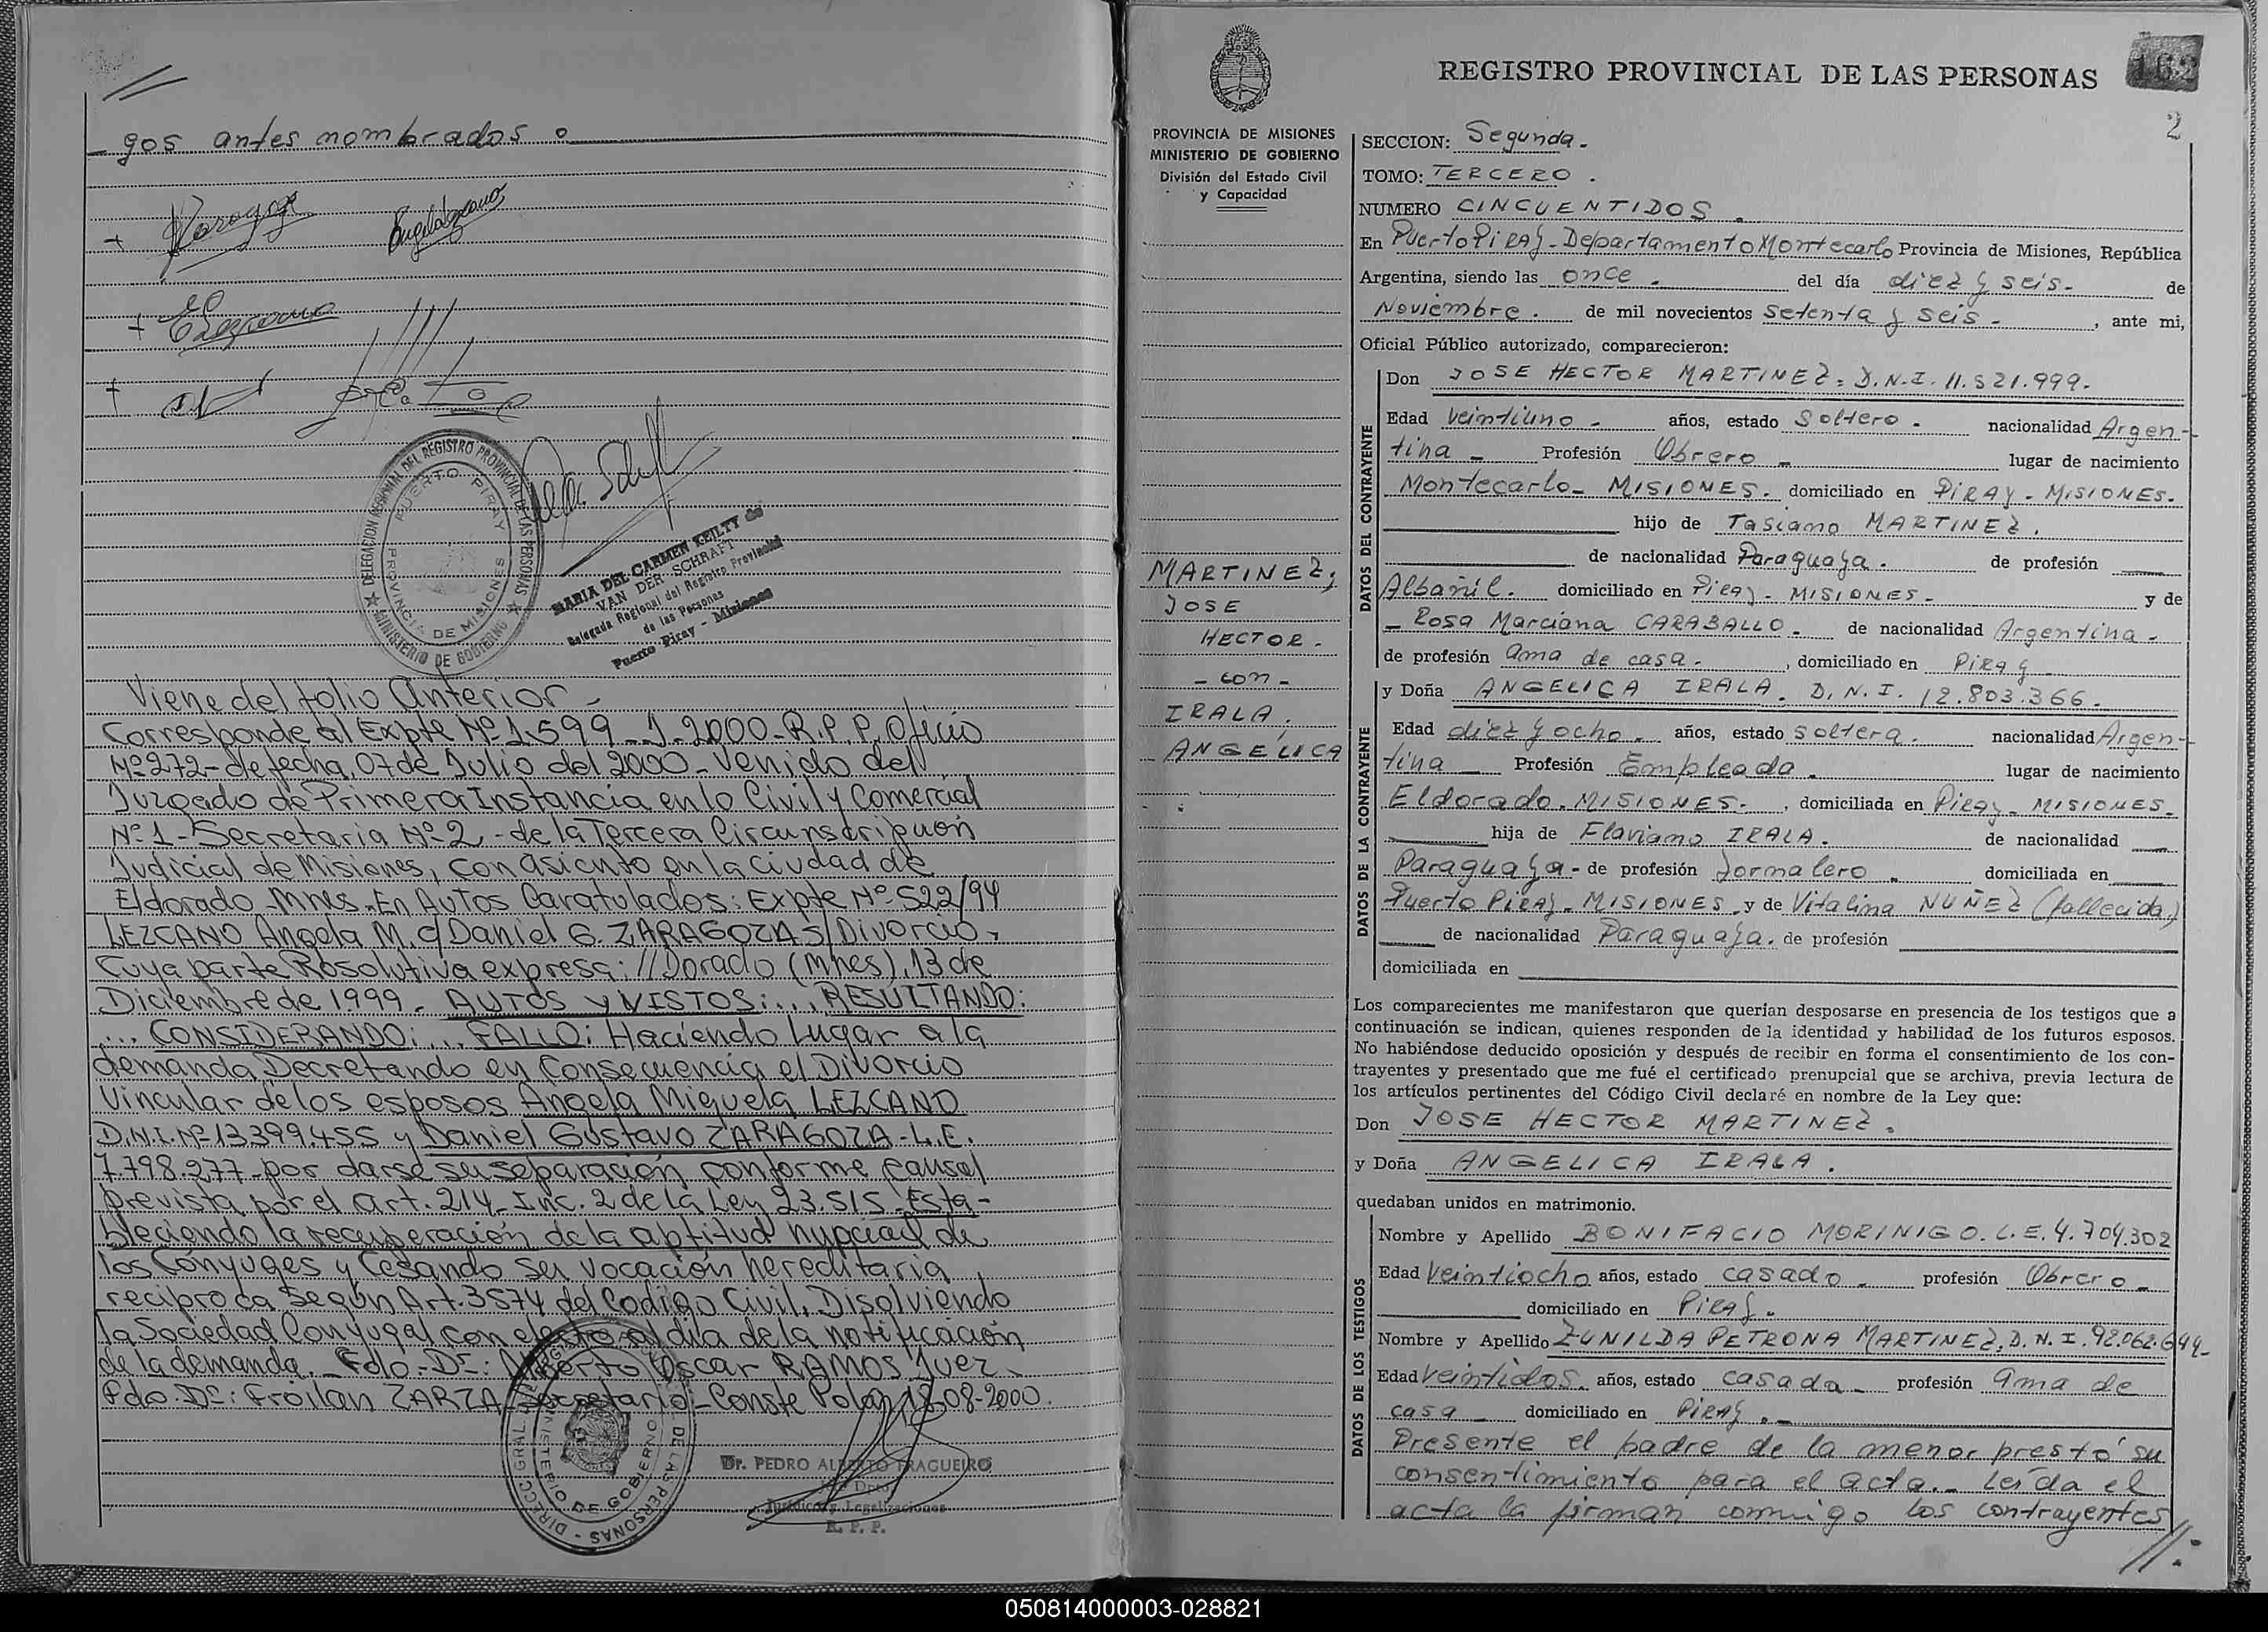 - gos antes nombrados.
DELEGACION REGIONAL DEL REGISTRO PROVINCIAL DE LAS PERSONAS
PUERTO PIRAY
PROVINCIA DE MISIONES
MINISTERIO DE GOBIERNO
MARIA DEL CARMEN KEILTY de
VAN DER SCHRAFT
Delegada Regional del Registro Provincial
de las Personas
Puerto Piray - Misiones
Viene del folio Anterior -
Corresponde al Expte Nº 1.599 - J - 2000 - R.P.P. Oficio
Nº 272 - de fecha, 07 de Julio del 2000 - Venido del
Juzgado de Primera Instancia en lo Civil y Comercial
Nº 1 - Secretaria Nº 2 - de la Tercera Circunscripción
Judicial de Misiones, con asiento en la ciudad de
Eldorado - Mnes. En Autos Caratulados: Expte Nº 522/94
LEZCANO Angela M. c/ Daniel G. ZARAGOZA S/ Divorcio,
Cuya parte Resolutiva expresa: // Dorado (Mnes), 13 de
Diciembre de 1999 - AUTOS y VISTOS: ... RESULTANDO:
... CONSIDERANDO: ... FALLO: Haciendo Lugar a la
demanda Decretando en Consecuencia el Divorcio
Vincular de los esposos Angela Miguela LEZCANO
D.N.I. Nº 13.399.455 y Daniel Gustavo ZARAGOZA - L.E.
7.798.277 - por darse su separación conforme causal
prevista por el art. 214 - Inc. 2 de la Ley 23.515. Esta-
bleciendo la recuperación de la aptitud nupcial de
los Cónyuges y Cesando su vocación hereditaria
reciproca Según Art. 3574 del Codigo Civil, Disolviendo
la Sociedad Conyugal con efecto al día de la notificación
de la demanda. - Fdo. - Dr: Alberto Oscar RAMOS Juez -
Fdo. Dr: Froilan ZARZA Secretario - Conste Pdas, 18-08-2000.
DIRECC. GRAL. DEL REGISTRO DE LAS PERSONAS
MINISTERIO DE GOBIERNO
Dr. PEDRO ALBERTO FRAGUEIRO
Dpto.
Jurídico y Legalizaciones
R. P. P.
REGISTRO PROVINCIAL DE LAS PERSONAS
162
2
PROVINCIA DE MISIONES
MINISTERIO DE GOBIERNO
División del Estado Civil
y Capacidad
MARTINEZ,
JOSE
HECTOR -
- con -
IRALA,
ANGÉLICA
SECCION: Segunda -
TOMO: TERCERO.
NUMERO CINCUENTIDOS.
En Puerto PiRAY - Departamento Montecarlo Provincia de Misiones, República
Argentina, siendo las once. del día diez y seis - de
Noviembre. de mil novecientos Setenta y seis -, ante mi,
Oficial Público autorizado, comparecieron:
DATOS DEL CONTRAYENTE
Don JOSE HECTOR MARTINEZ. D.N.I. 11.521.999.
Edad Veintiuno - años, estado Soltero - nacionalidad Argen-
tina - Profesión Obrero - lugar de nacimiento
Montecarlo - MISIONES. domiciliado en PiRAY - MISIONES.
hijo de Tasiano MARTINEZ.
de nacionalidad Paraguaya. de profesión
Albañil. domiciliado en PiRAY - MISIONES - y de
- Rosa Marciana CARABALLO - de nacionalidad Argentina -
de profesión ama de casa -, domiciliado en PiRAY
DATOS DE LA CONTRAYENTE
y Doña ANGELICA IRALA. D.N.I. 12.803.366.
Edad diez y ocho - años, estado soltera. nacionalidad Argen-
tina - Profesión Empleada. lugar de nacimiento
Eldorado. MISIONES., domiciliada en PiRAY - MISIONES.
hija de Flaviano IRALA. de nacionalidad
Paraguaya - de profesión Jornalero - domiciliada en
Puerto PiRAY - MISIONES y de Vitalina NUÑEZ (fallecida)
de nacionalidad Paraguaya. de profesión
domiciliada en
Los comparecientes me manifestaron que querían desposarse en presencia de los testigos que a
continuación se indican, quienes responden de la identidad y habilidad de los futuros esposos.
No habiéndose deducido oposición y después de recibir en forma el consentimiento de los con-
trayentes y presentado que me fué el certificado prenupcial que se archiva, previa lectura de
los artículos pertinentes del Código Civil declaré en nombre de la Ley que:
Don JOSE HECTOR MARTINEZ.
y Doña ANGELICA IRALA.
quedaban unidos en matrimonio.
DATOS DE LOS TESTIGOS
Nombre y Apellido BONIFACIO MORINIGO. L.E. 4.704.302
Edad Veintiocho años, estado casado - profesión Obrero -
domiciliado en PiRAY.
Nombre y Apellido ZUNILDA PETRONA MARTINEZ, D.N.I. 92.062.644 -
Edad Veintidos. años, estado casada - profesión ama de
casa - domiciliado en PiRAY. -
Presente el padre de la menor prestó su
consentimiento para el acta. - Leída el
acta la firman conmigo los contrayentes
//.
050814000003-028821